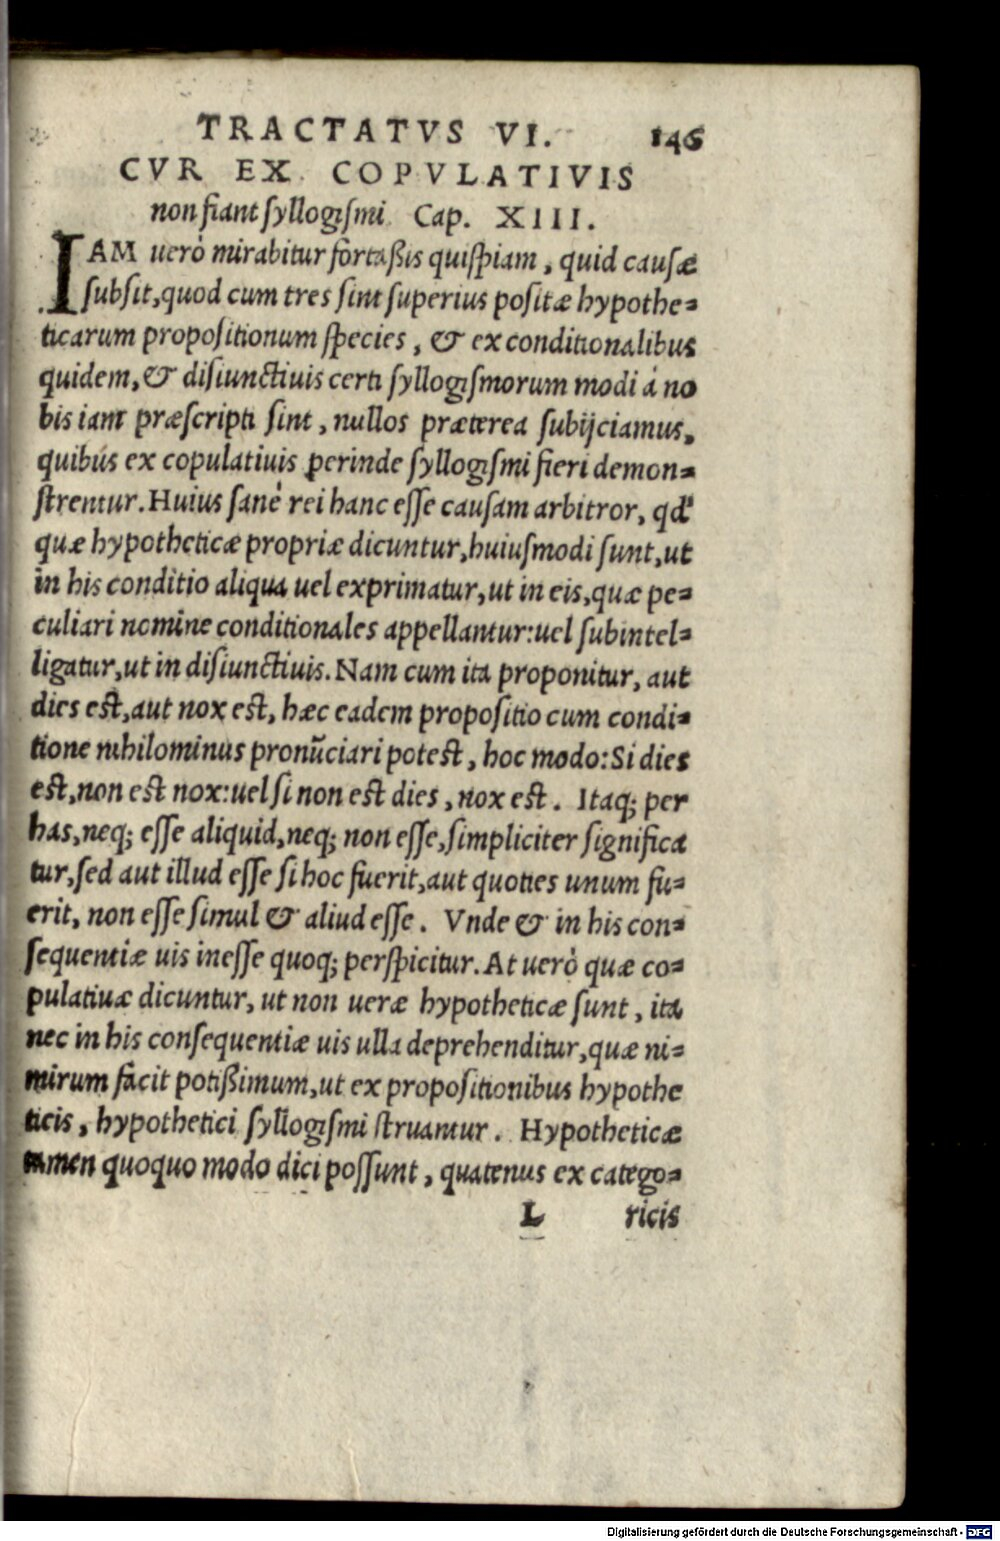 TRACTATVS VI. 146
CVR EX COPVLATIVIS
non fiant syllogismi Cap. XIII.
IAM uerò mirabitur fortaßis quispiam, quid causæ
subsit, quod cum tres sint superius positæ hypothe=
ticarum propositionum species, & ex conditionalibus
quidem, & disiunctiuis certi syllogismorum modi á no
bis iam præscripti sint, nullos præterea subijciamus,
quibús ex copulatiuis perinde syllogismi fieri demon=
strentur. Huius sanè rei hanc esse causam arbitror, qđ
quæ hypotheticæ propriæ dicuntur, huiusmodi sunt, ut
in his conditio aliqua uel exprimatur, ut in eis, quæ pe=
culiari nomine conditionales appellantur: uel subintel=
ligatur, ut in disiunctiuis. Nam cum ita proponitur, aut
dies est, aut nox est, hæc eadem propositio cum condi=
tione nihilominus pronũciari potest, hoc modo: Si dies
est, non est nox: uel si non est dies, nox est. Itaq; per
has, neq; esse aliquid, neq; non esse, simpliciter significa
tur, sed aut illud esse si hoc fuerit, aut quoties unum fu=
erit, non esse simul & aliud esse. Vnde & in his con=
sequentiæ uis inesse quoq; perspicitur. At uerò quæ co=
pulatiuæ dicuntur, ut non ueræ hypotheticæ sunt, ita
nec in his consequentiæ uis ulla deprehenditur, quæ ni=
mirum facit potißimum, ut ex propositionibus hypothe
ticis, hypothetici syllogismi struantur. Hypotheticæ
tamen quoquo modo dici possunt, quatenus ex catego=
L ricis
Digitalisierung gefördert durch die Deutsche Forschungsgemeinschaft - DFG